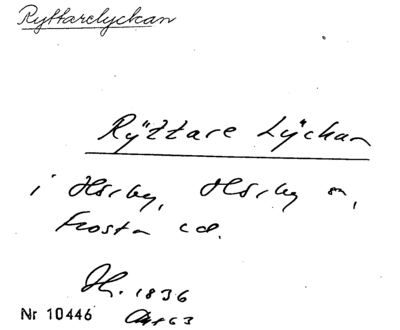 Ryttarelyckan
Rÿttare Lÿckan
i Hörby, Hörby sn,
Frosta hd.
Jb. 1836
Nr 10446